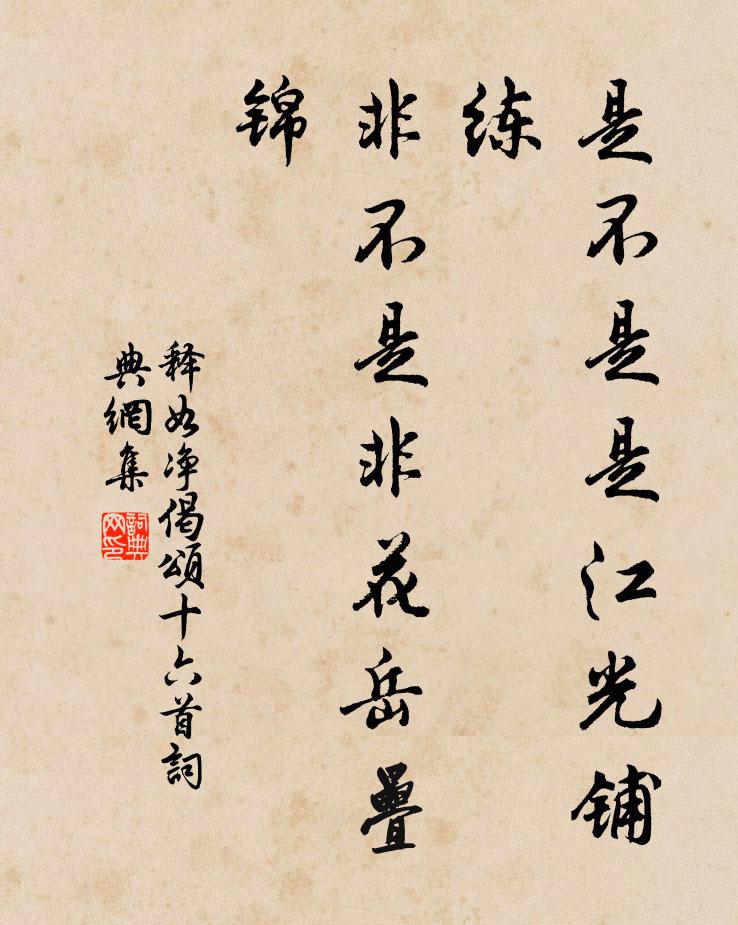 是不是是江光铺
练
非不是非花岳疊
锦
释如净偈頌十六首詞
典網集
詞典
网印